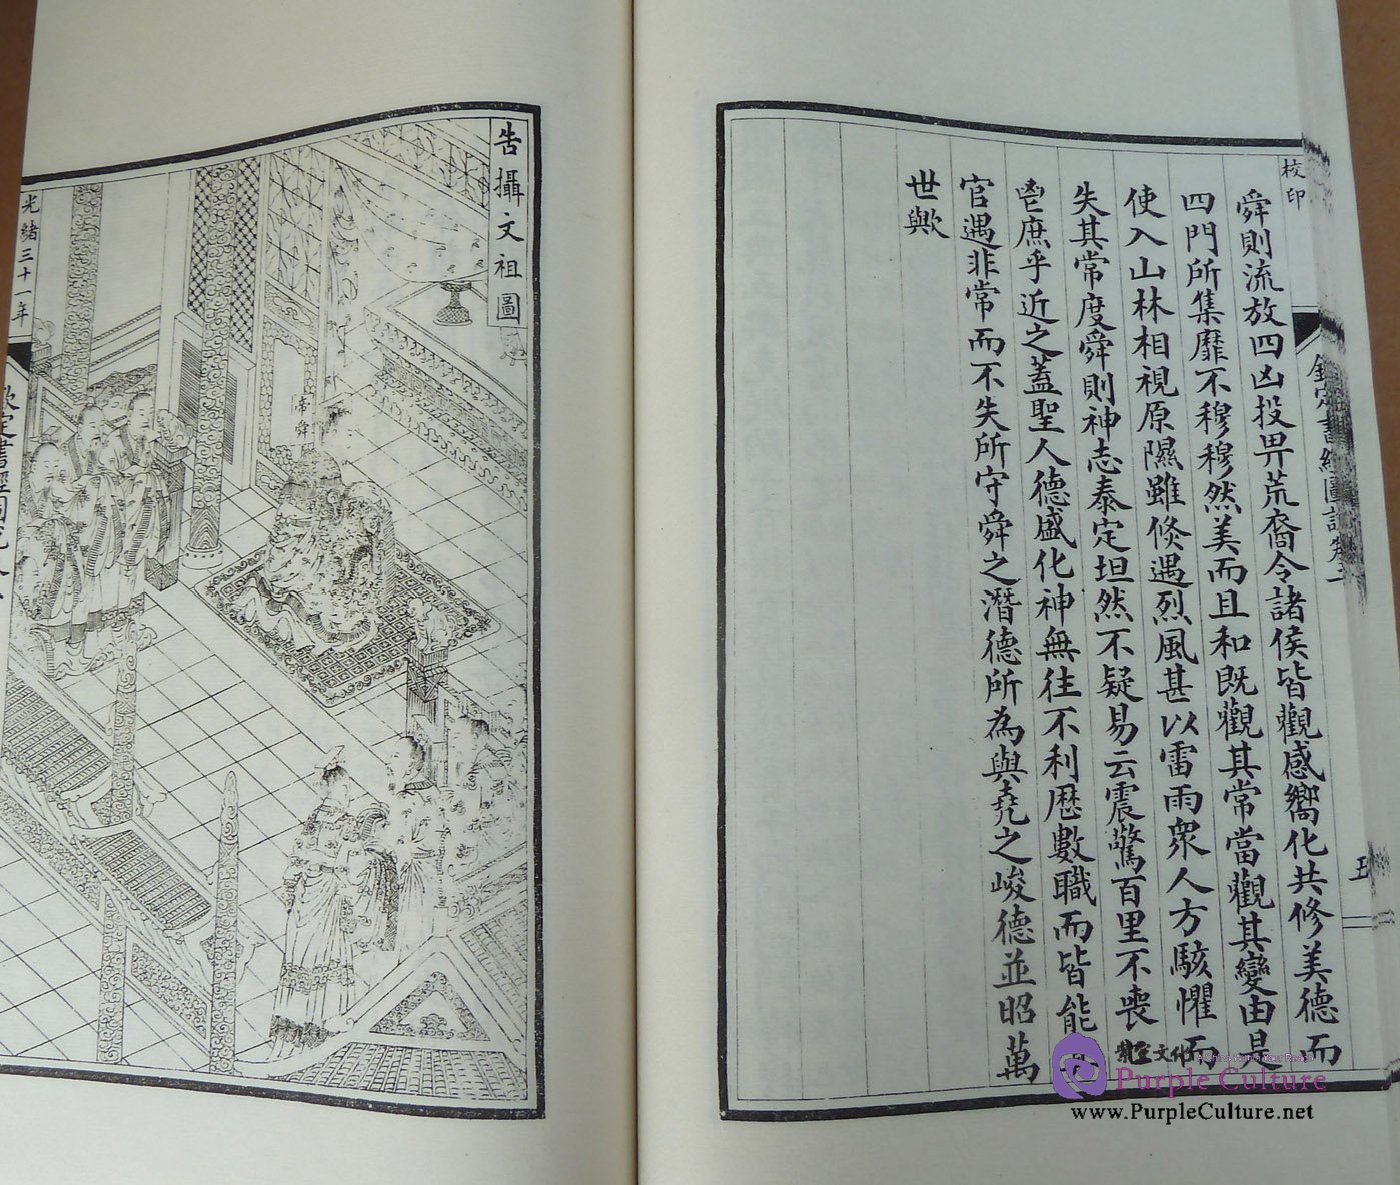 校印
欽定書經圖說卷二
五
舜則流放四凶投畀荒裔令諸侯皆觀感嚮化共修美德而
四門所集靡不穆穆然美而且和既觀其常當觀其變由是
使入山林相視原隰雖倏遇烈風甚以雷雨眾人方駭懼而
失其常度舜則神志泰定坦然不疑易云震驚百里不喪
鬯庶乎近之蓋聖人德盛化神無往不利歷數職而皆能
官遇非常而不失所守舜之潛德所為與堯之峻德並昭萬
世歟
告攝文祖圖
帝舜
光緒三十一年
欽定書經圖說卷
Purple Culture
www.PurpleCulture.net